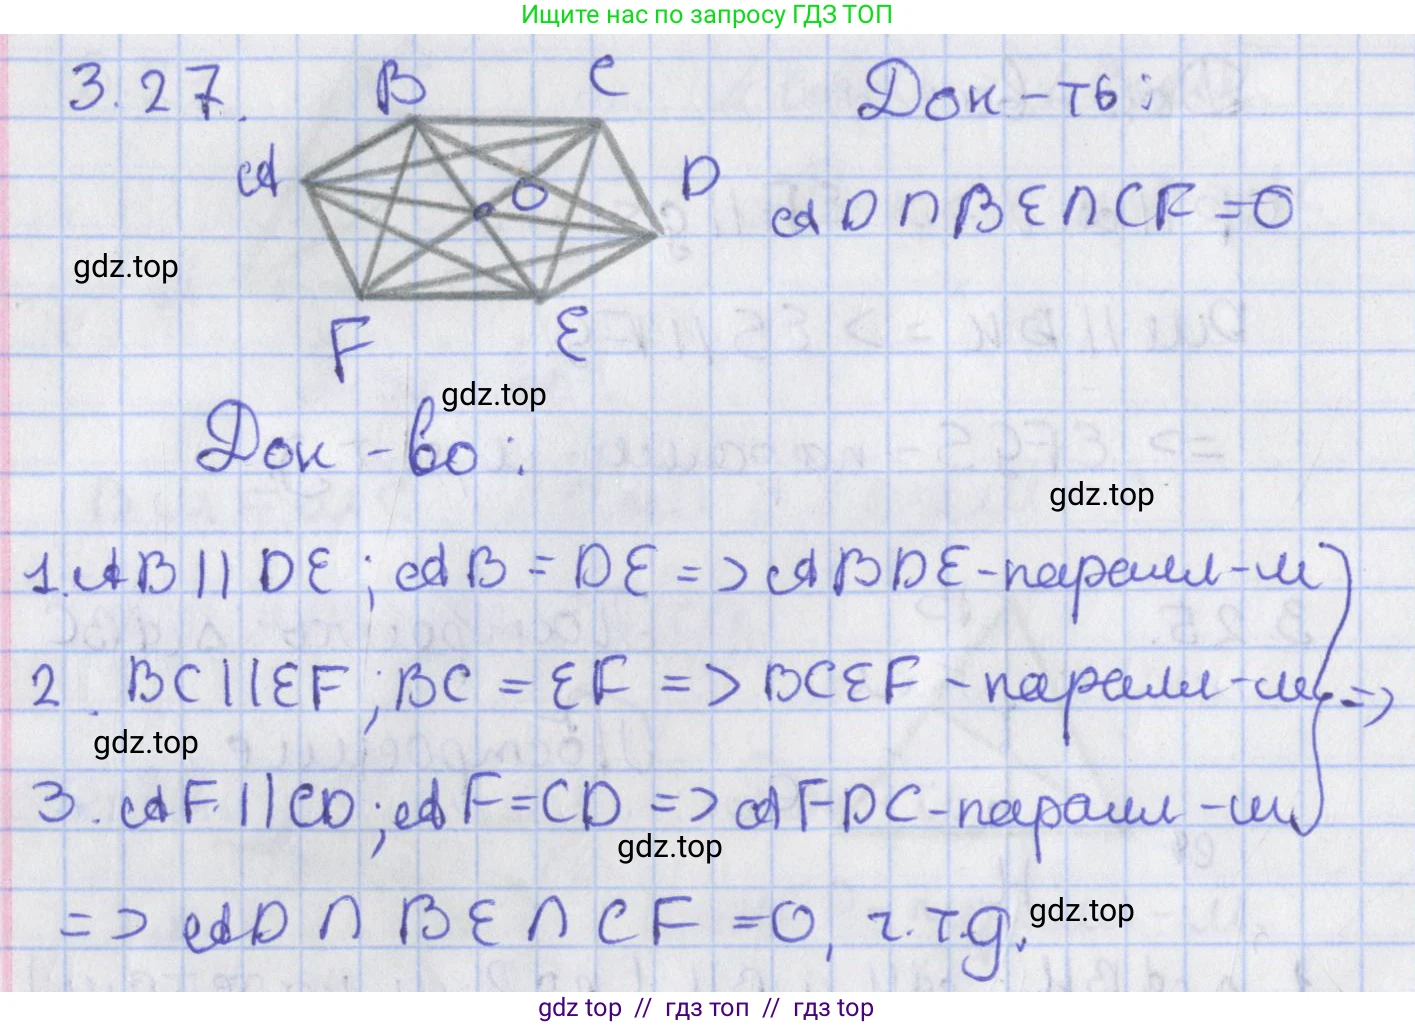 Ищите нас по запросу ГДЗ ТОП
3.27.
B C
A D
O
F E
Док-ть:
AD∩BE∩CF=O
gdz.top
gdz.top
Док-во:
gdz.top
1. AB||DE; AB=DE => ABDE-паралл-м
2. BC||EF; BC=EF => BCEF-паралл-м =>
gdz.top
3. AF||CD; AF=CD => AFDC-паралл-м
gdz.top
=> AD∩BE∩CF=O, ч.т.д.
gdz.top
gdz top // гдз топ // гдз top